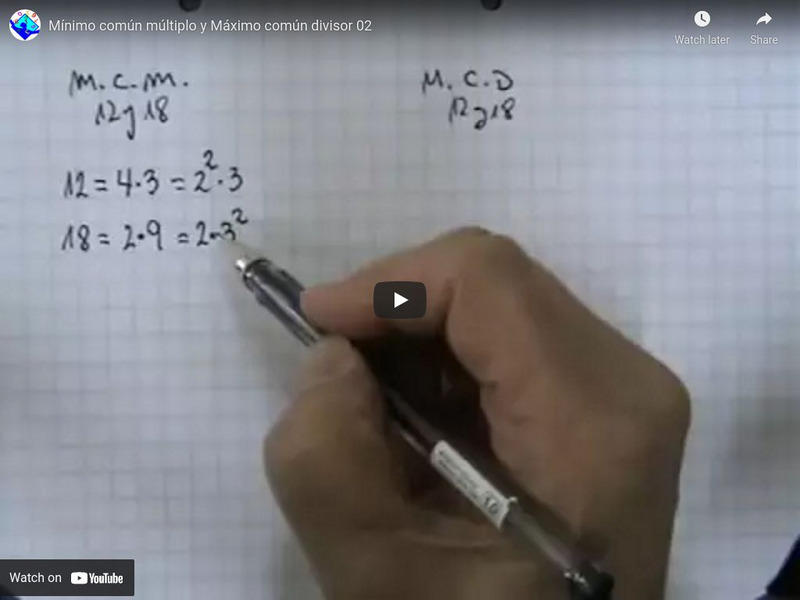 Mínimo común múltiplo y Máximo común divisor 02
Watch later
Share
m.c.m.
12 y 18
M.C.D
12 y 18
12 = 4·3 = 2²·3
18 = 2·9 = 2·3²
Watch on YouTube